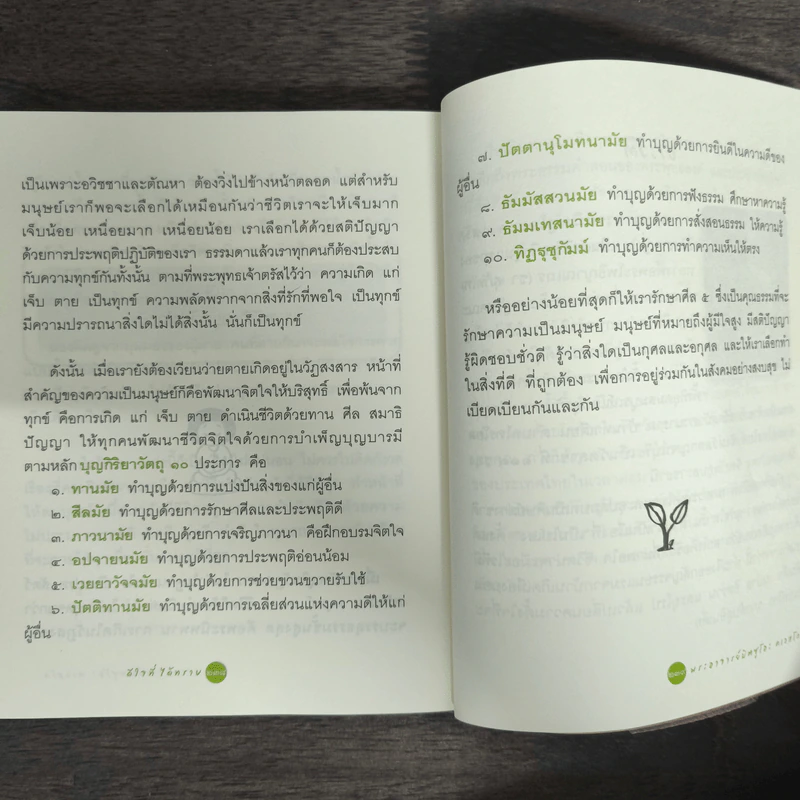 เป็นเพราะอวิชชาและตัณหา ต้องวิ่งไปข้างหน้าตลอด แต่สำหรับ
มนุษย์เราก็พอจะเลือกได้เหมือนกันว่าชีวิตเราจะให้เจ็บมาก
เจ็บน้อย เหนื่อยมาก เหนื่อยน้อย เราเลือกได้ด้วยสติปัญญา
ด้วยการประพฤติปฏิบัติของเรา ธรรมดาแล้วเราทุกคนก็ต้องประสบ
กับความทุกข์กันทั้งนั้น ตามที่พระพุทธเจ้าตรัสไว้ว่า ความเกิด แก่
เจ็บ ตาย เป็นทุกข์ ความพลัดพรากจากสิ่งที่รักที่พอใจ เป็นทุกข์
มีความปรารถนาสิ่งใดไม่ได้สิ่งนั้น นั่นก็เป็นทุกข์
ดังนั้น เมื่อเรายังต้องเวียนว่ายตายเกิดอยู่ในวัฏสงสาร หน้าที่
สำคัญของความเป็นมนุษย์ก็คือพัฒนาจิตใจให้บริสุทธิ์ เพื่อพ้นจาก
ทุกข์ คือการเกิด แก่ เจ็บ ตาย ดำเนินชีวิตด้วยทาน ศีล สมาธิ
ปัญญา ให้ทุกคนพัฒนาชีวิตจิตใจด้วยการบำเพ็ญบุญบารมี
ตามหลักบุญกิริยาวัตถุ ๑๐ ประการ คือ
๑. ทานมัย ทำบุญด้วยการแบ่งปันสิ่งของแก่ผู้อื่น
๒. สีลมัย ทำบุญด้วยการรักษาศีลและประพฤติดี
๓. ภาวนามัย ทำบุญด้วยการเจริญภาวนา คือฝึกอบรมจิตใจ
๔. อปจายนมัย ทำบุญด้วยการประพฤติอ่อนน้อม
๕. เวยยาวัจจมัย ทำบุญด้วยการช่วยขวนขวายรับใช้
๖. ปัตติทานมัย ทำบุญด้วยการเฉลี่ยส่วนแห่งความดีให้แก่
ผู้อื่น
ดีใจที่ได้กราบ
๗. ปัตตานุโมทนามัย ทำบุญด้วยการยินดีในความดีของ
ผู้อื่น
๘. ธัมมัสสวนมัย ทำบุญด้วยการฟังธรรม ศึกษาหาความรู้
๙. ธัมมเทสนามัย ทำบุญด้วยการสั่งสอนธรรม ให้ความรู้
๑๐. ทิฏฐุชุกัมม์ ทำบุญด้วยการทำความเห็นให้ตรง
หรืออย่างน้อยที่สุดก็ให้เรารักษาศีล ๕ ซึ่งเป็นคุณธรรมที่จะ
รักษาความเป็นมนุษย์ มนุษย์ที่หมายถึงผู้มีใจสูง มีสติปัญญา
รู้ผิดชอบชั่วดี รู้ว่าสิ่งใดเป็นกุศลและอกุศล และให้เราเลือกทำ
ในสิ่งที่ดี ที่ถูกต้อง เพื่อการอยู่ร่วมกันในสังคมอย่างสงบสุข ไม่
เบียดเบียนกันและกัน
พระอาจารย์มิตซูโอะ